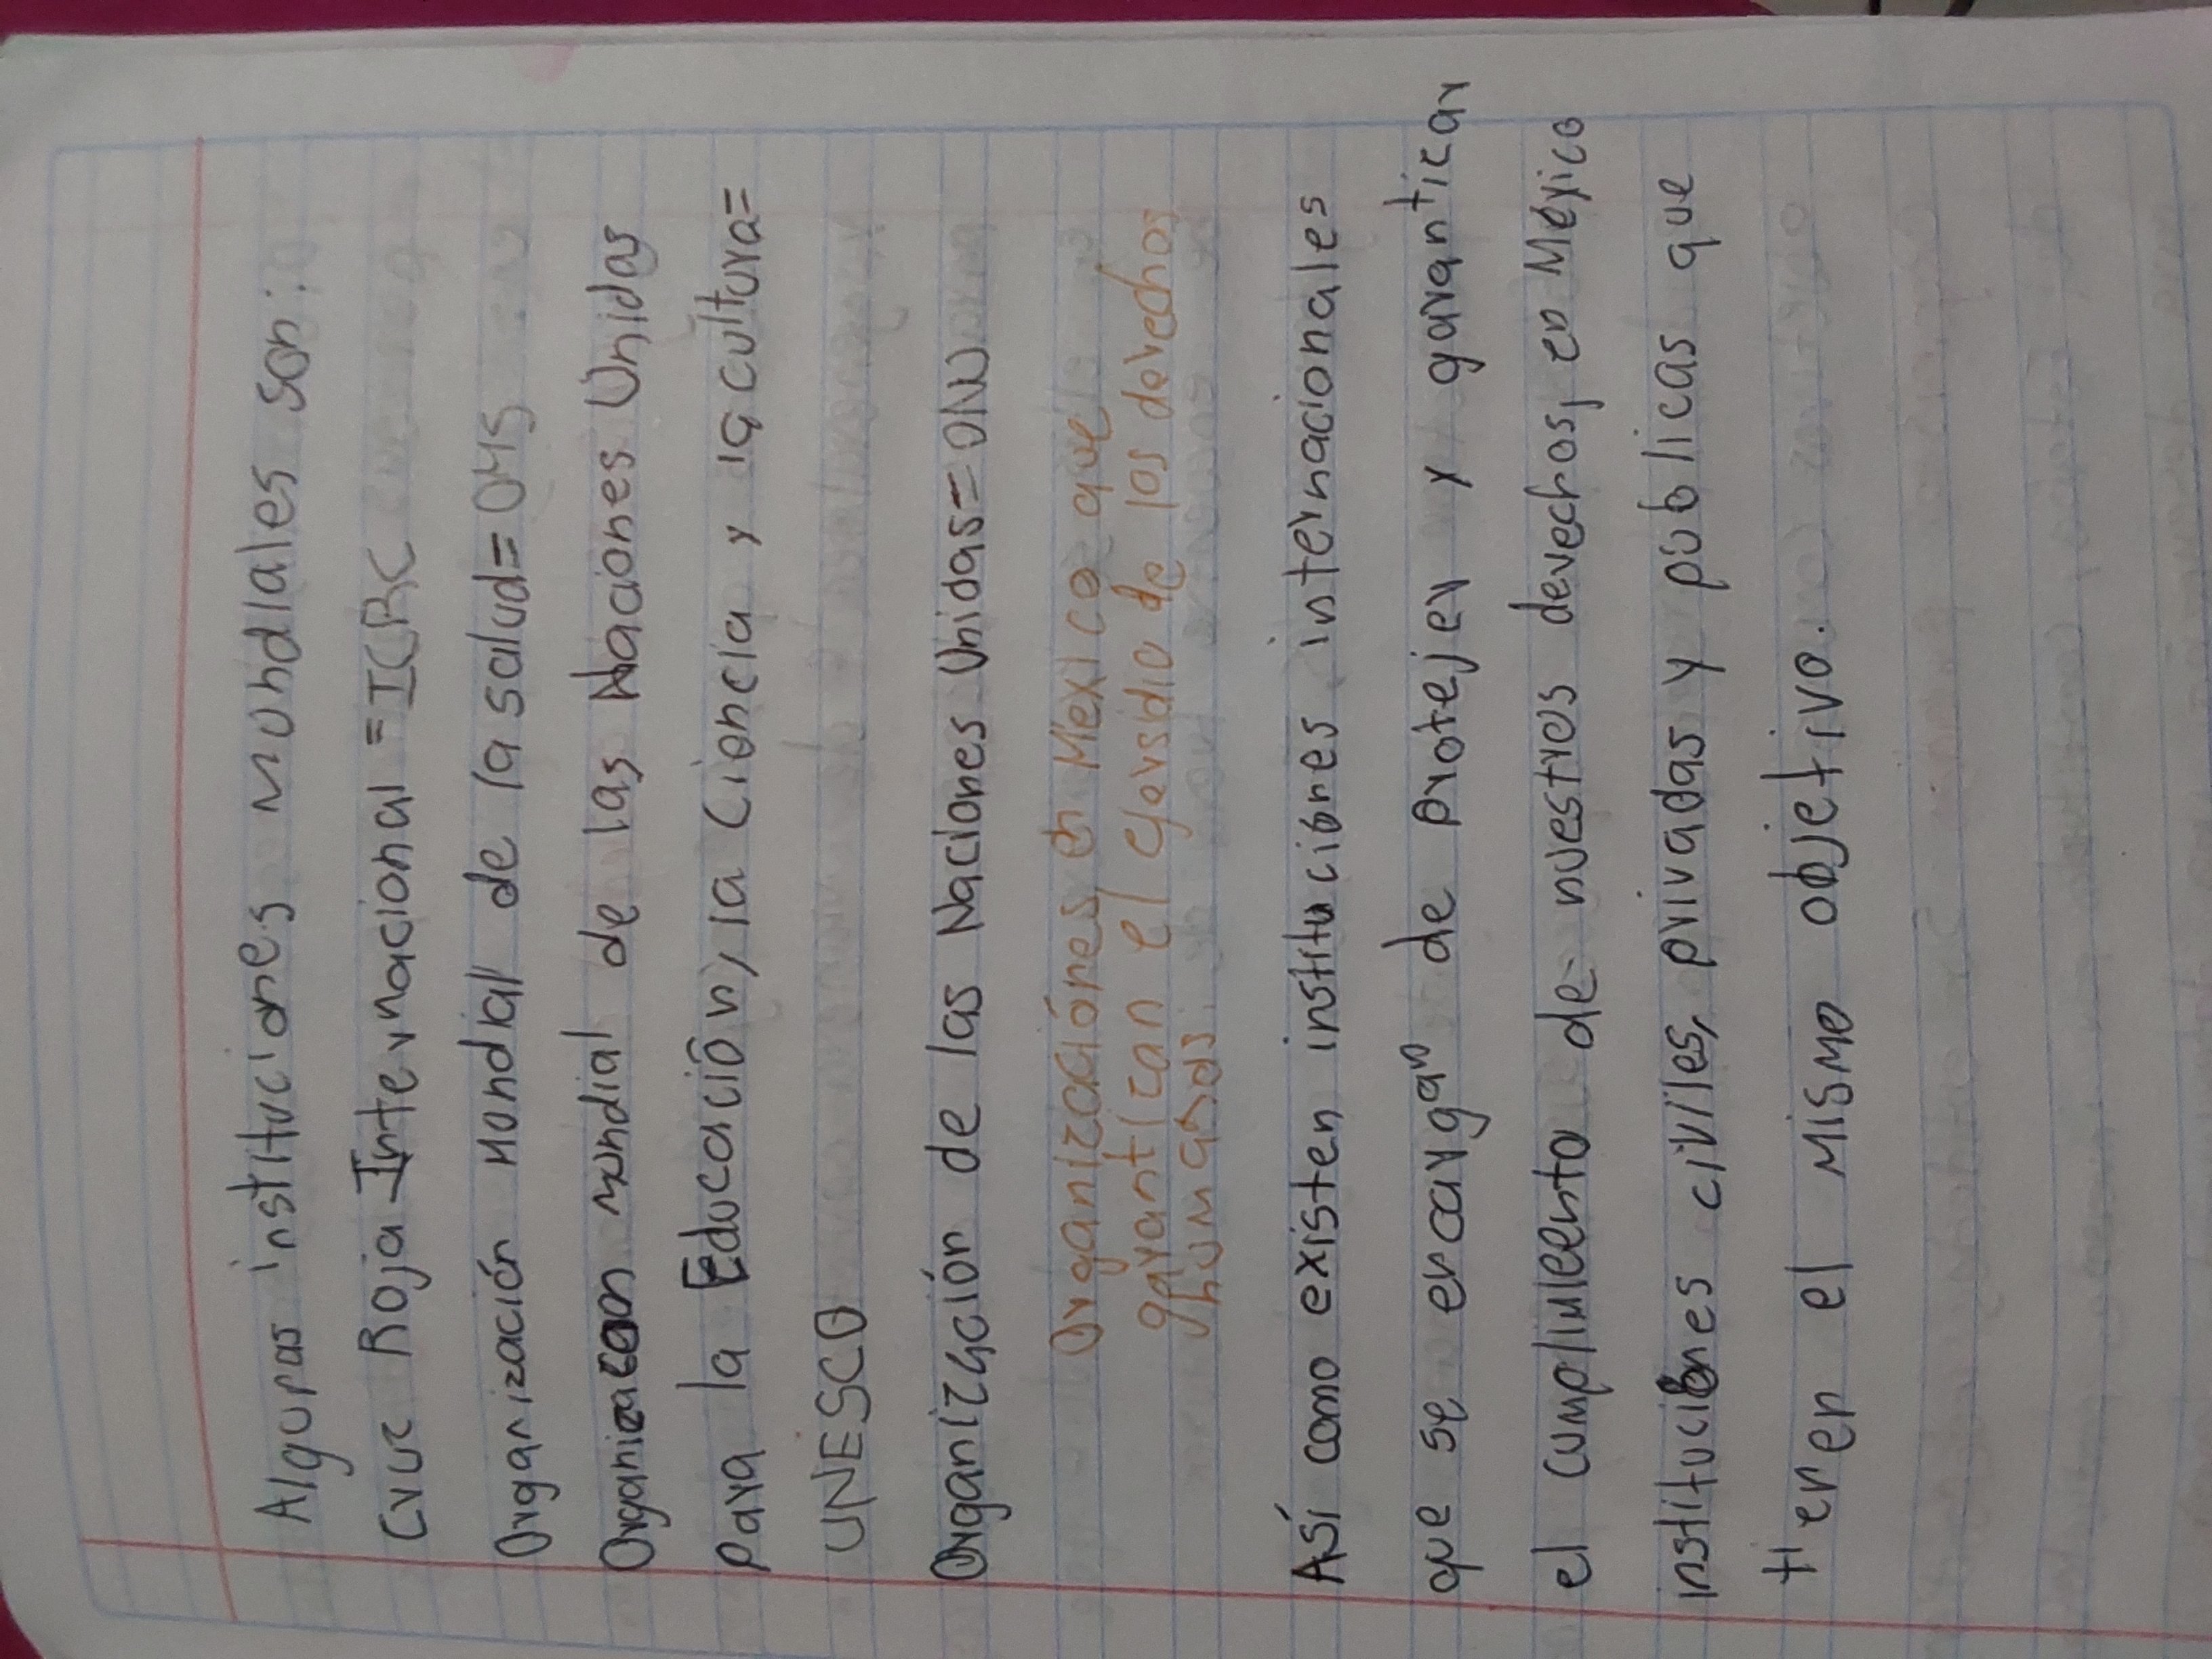 Algunas instituciones mundiales son:
Cruz Roja Internacional = ICRC
Organización Mundial de la salud = OMS
Organización mundial de las Naciones Unidas
para la Educación, la Ciencia y la cultura =
UNESCO
Organización de las Naciones Unidas = ONU
Organizaciónes en México que
garantizan el ejersidio de los derechos
humanos.
Así como existen instituciones internacionales
que se encargan de protejer y garantizar
el cumplimeento de nuestros derechos, en México
instituciones civiles, privadas y publicas que
tienen el mismo objetivo.